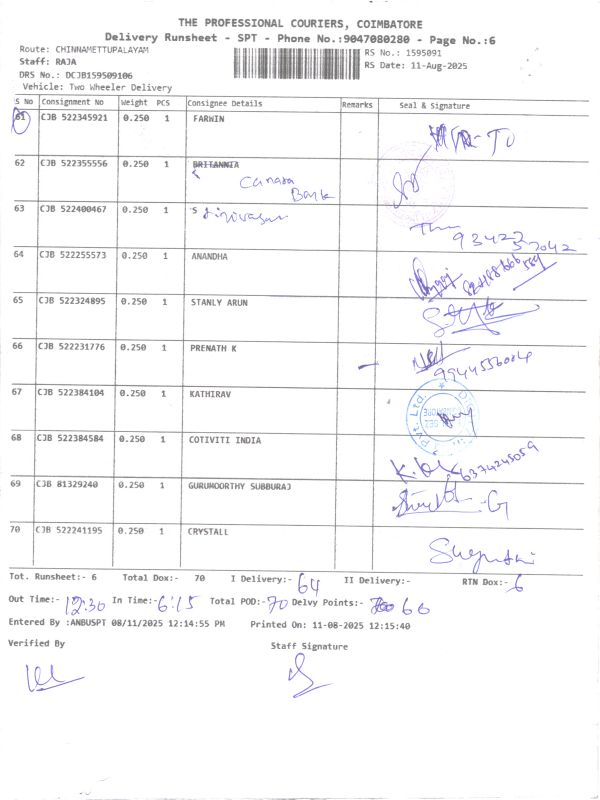 THE PROFESSIONAL COURIERS, COIMBATORE
Delivery Runsheet - SPT - Phone No.:9047080280 - Page No.:6
Route: CHINNAMETTUPALAYAM RS No.: 1595091
Staff: RAJA RS Date: 11-Aug-2025
DRS No.: DCJB159509106
Vehicle: Two Wheeler Delivery
S No Consignment No Weight PCS Consignee Details Remarks Seal & Signature
61 CJB 522345921 0.250 1 FARWIN
62 CJB 522355556 0.250 1 BRITANNIA
Canara
Bank
63 CJB 522400467 0.250 1 S Srinivasan
93422
57042
64 CJB 522255573 0.250 1 ANANDHA
65 CJB 522324895 0.250 1 STANLY ARUN
66 CJB 522231776 0.250 1 PRENATH K
9944556004
67 CJB 522384104 0.250 1 KATHIRAV
Pvt. Ltd.
68 CJB 522384584 0.250 1 COTIVITI INDIA
6374245059
69 CJB 81329240 0.250 1 GURUMOORTHY SUBBURAJ
70 CJB 522241195 0.250 1 CRYSTALL
Tot. Runsheet:- 6 Total Dox:- 70 I Delivery:- 64 II Delivery:- RTN Dox:- 6
Out Time:- 12:30 In Time:- 6:15 Total POD:- 70 Delvy Points:- 66
Entered By :ANBUSPT 08/11/2025 12:14:55 PM Printed On: 11-08-2025 12:15:40
Verified By Staff Signature